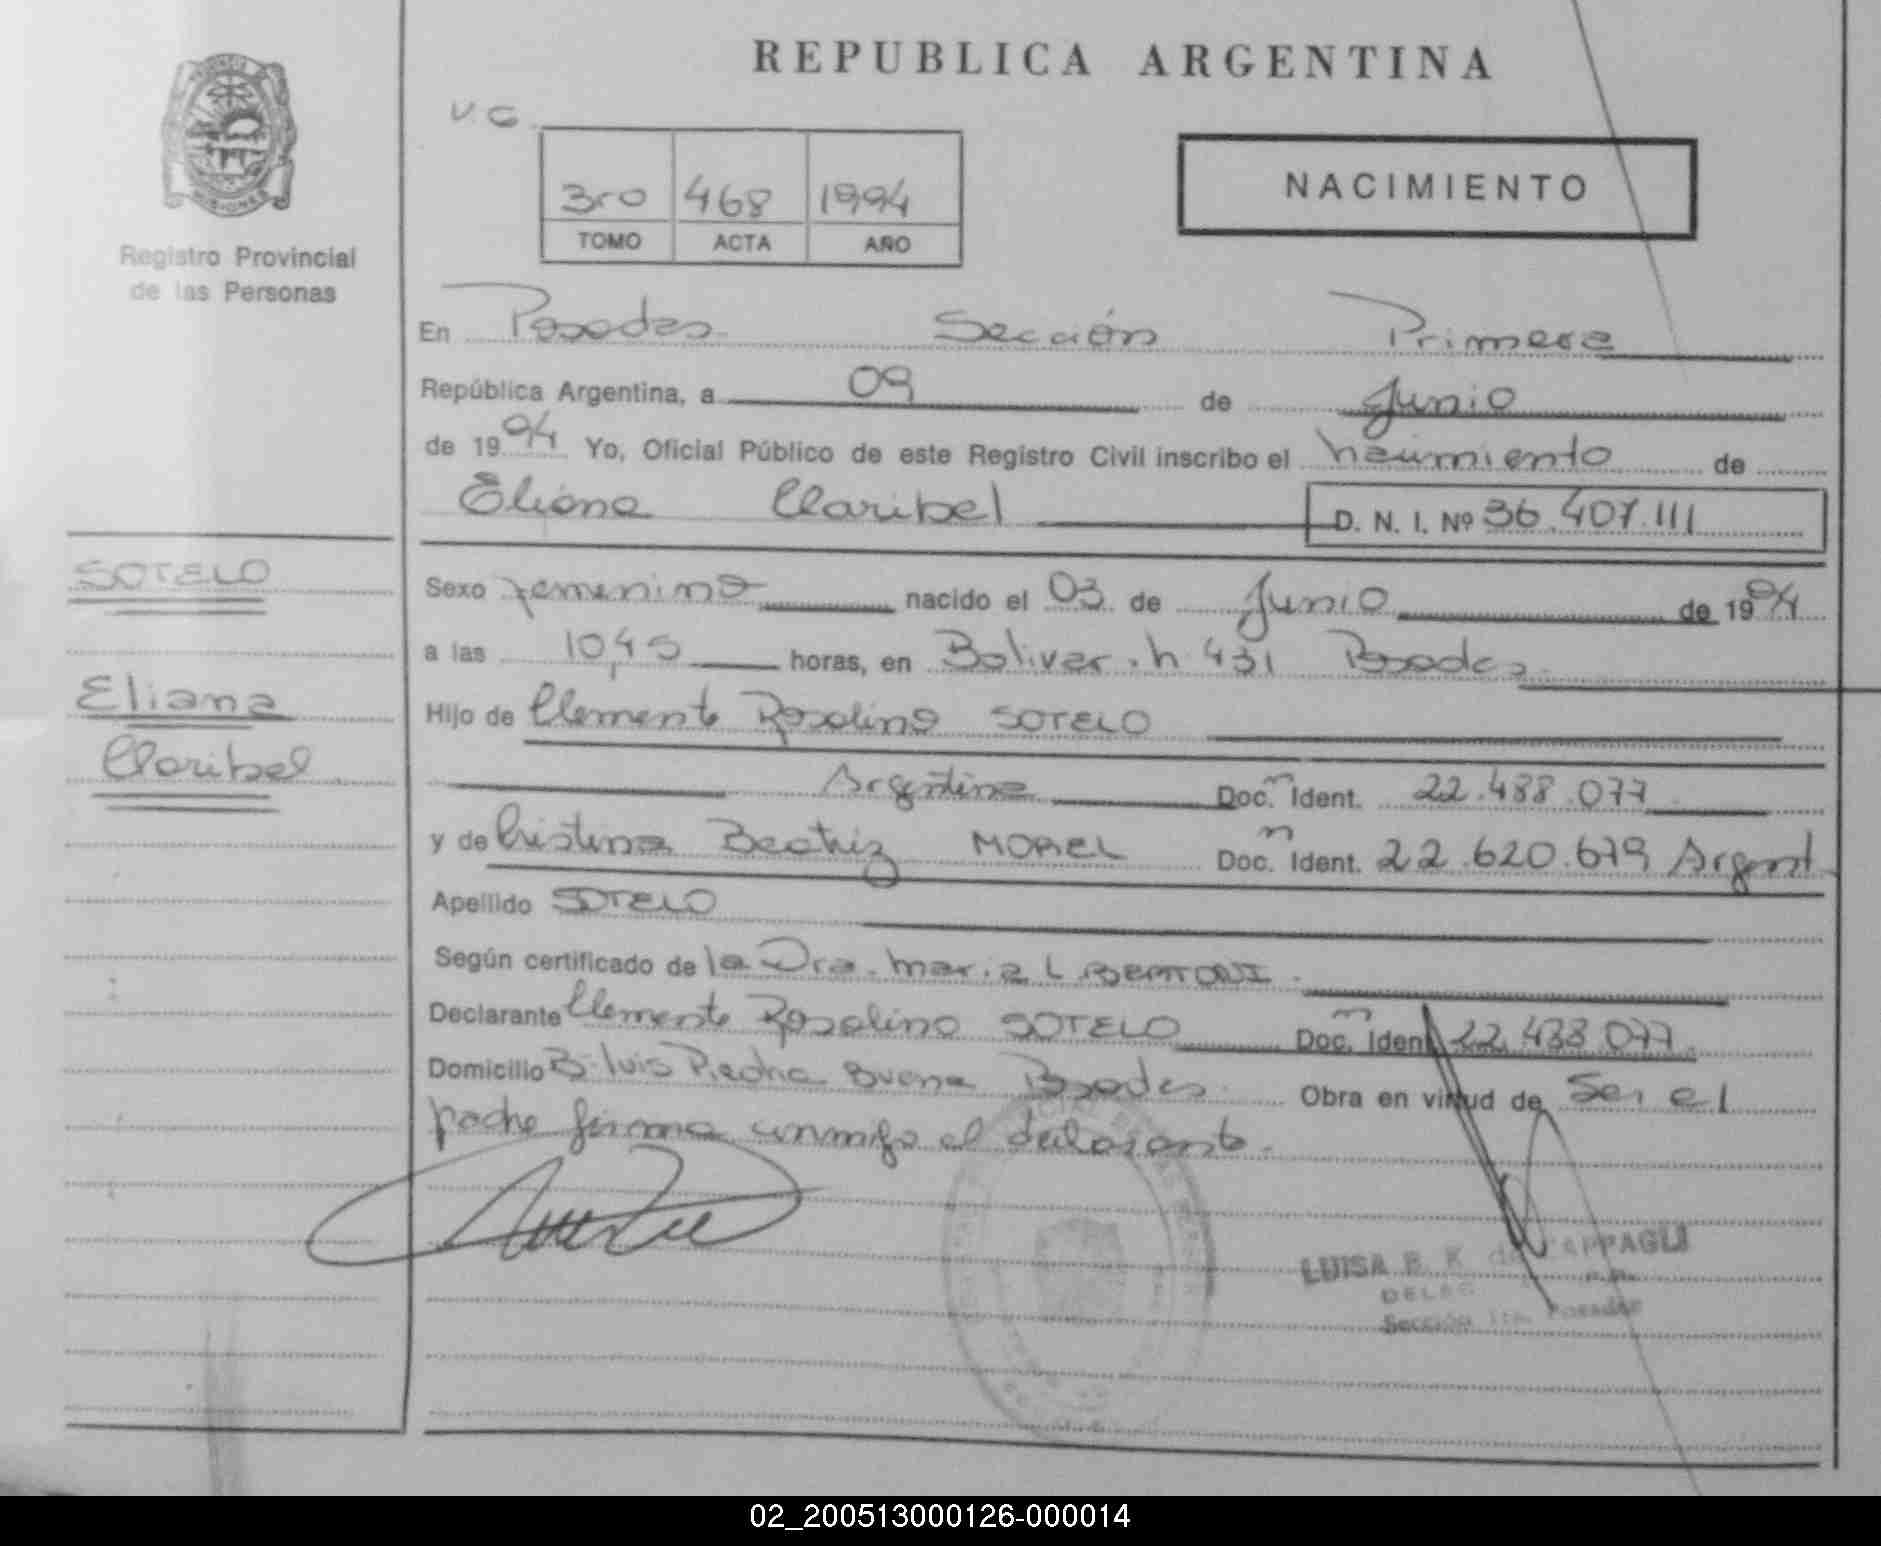 REPUBLICA ARGENTINA
V.G.
3ro 468 1994
TOMO ACTA AÑO
NACIMIENTO
MISIONES
Registro Provincial
de las Personas
En Posadas Sección Primera
República Argentina, a 09 de Junio
de 1994 Yo, Oficial Público de este Registro Civil inscribo el nacimiento de
Eliana Claribel D. N. I. Nº 36.407.111
SOTELO
Eliana
Claribel
Sexo femenino nacido el 03 de Junio de 1994
a las 10,45 horas, en Bolivar. n 431 Posadas
Hijo de Clemente Rosalino SOTELO
Argentina Doc. Ident. 22.488.077
y de Cristina Beatriz MOREL Doc. Ident. 22.620.679 Argent.
Apellido SOTELO
Según certificado de la Dra. Maria L BERTONI.
Declarante Clemente Rosalino SOTELO Doc. Ident. 22.488.077
Domicilio B. Luis Piedra Buena Posadas. Obra en virtud de Ser el
padre firma conmigo el declarante.
LUISA B. K. de CAPPAGLI
Sección 1ra. Posadas
02_200513000126-000014